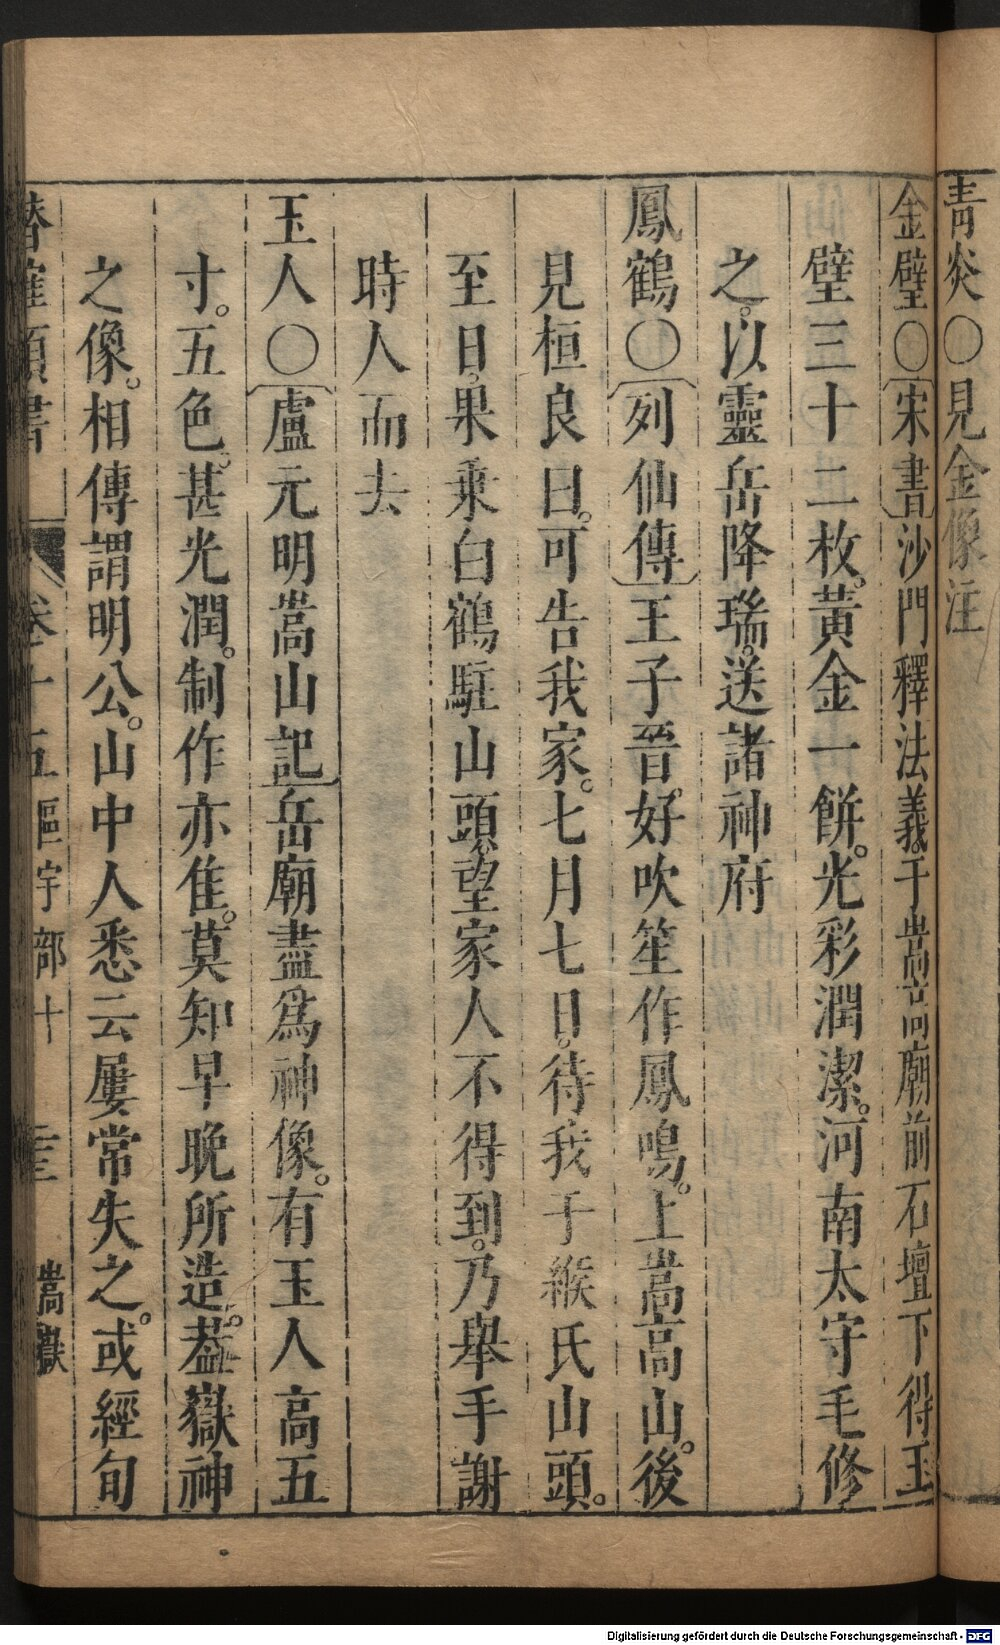 靑炎○見金像注
金璧○宋書沙門釋法義于嵩高廟前石壇下得玉
璧三十二枚。黃金一餅。光彩潤潔。河南太守毛修
之。以靈岳降瑞。送諸神府
鳳鶴○列仙傳王子晉好吹笙作鳳鳴。上嵩高山。後
見桓良曰。可告我家。七月七日。待我于緱氏山頭。
至日。果乘白鶴駐山頭。望家人不得到。乃舉手謝
時人而去
玉人○盧元明嵩山記岳廟盡爲神像。有玉人高五
寸。五色。甚光潤。制作亦隹。莫知早晚所造。葢嶽神
之像。相傳謂明公。山中人悉云屢常失之。或經旬
潛確類書 卷十五區宇部十 嵩嶽
Digitalisierung gefördert durch die Deutsche Forschungsgemeinschaft - DFG